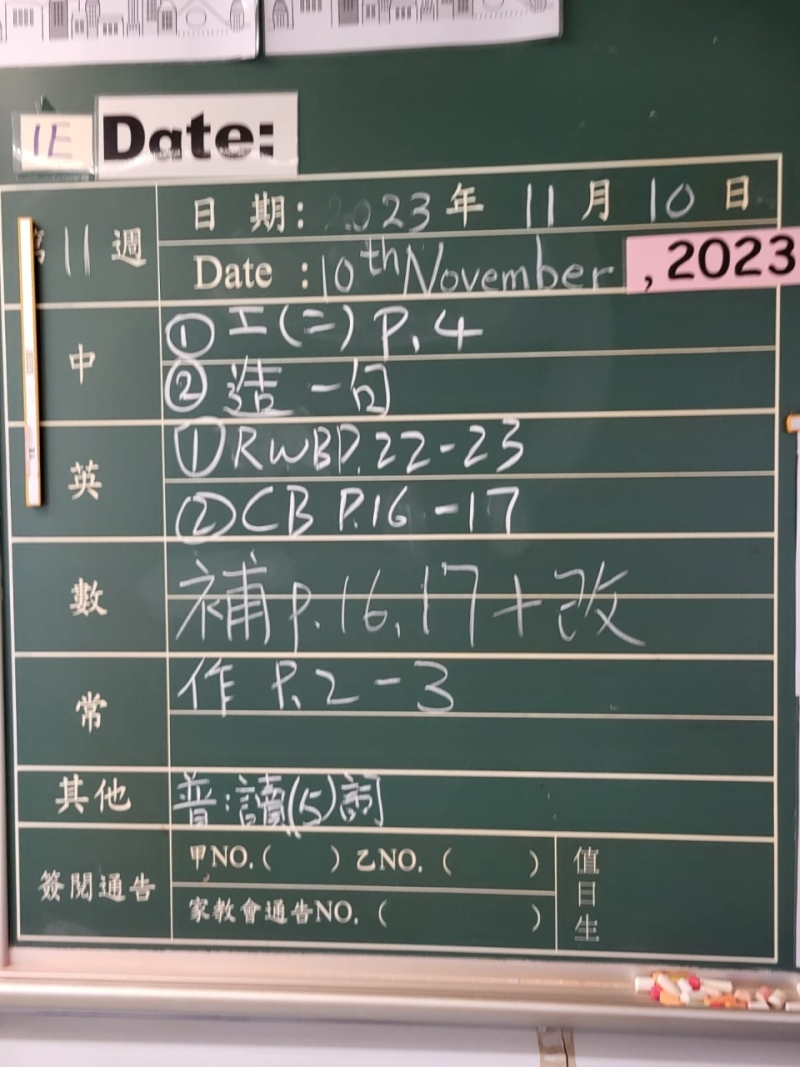 1E Date:
第11週
日 期: 2023年 11月 10日
Date : 10th November, 2023
中
① 工(二) P.4
② 造一句
英
① RWB P.22-23
② CB P.16-17
數
補 P.16,17+改
常
作 P.2-3
其他
普:讀(5)詞
簽閱通告
甲NO.( ) 乙NO.( )
家教會通告NO.( )
值日生